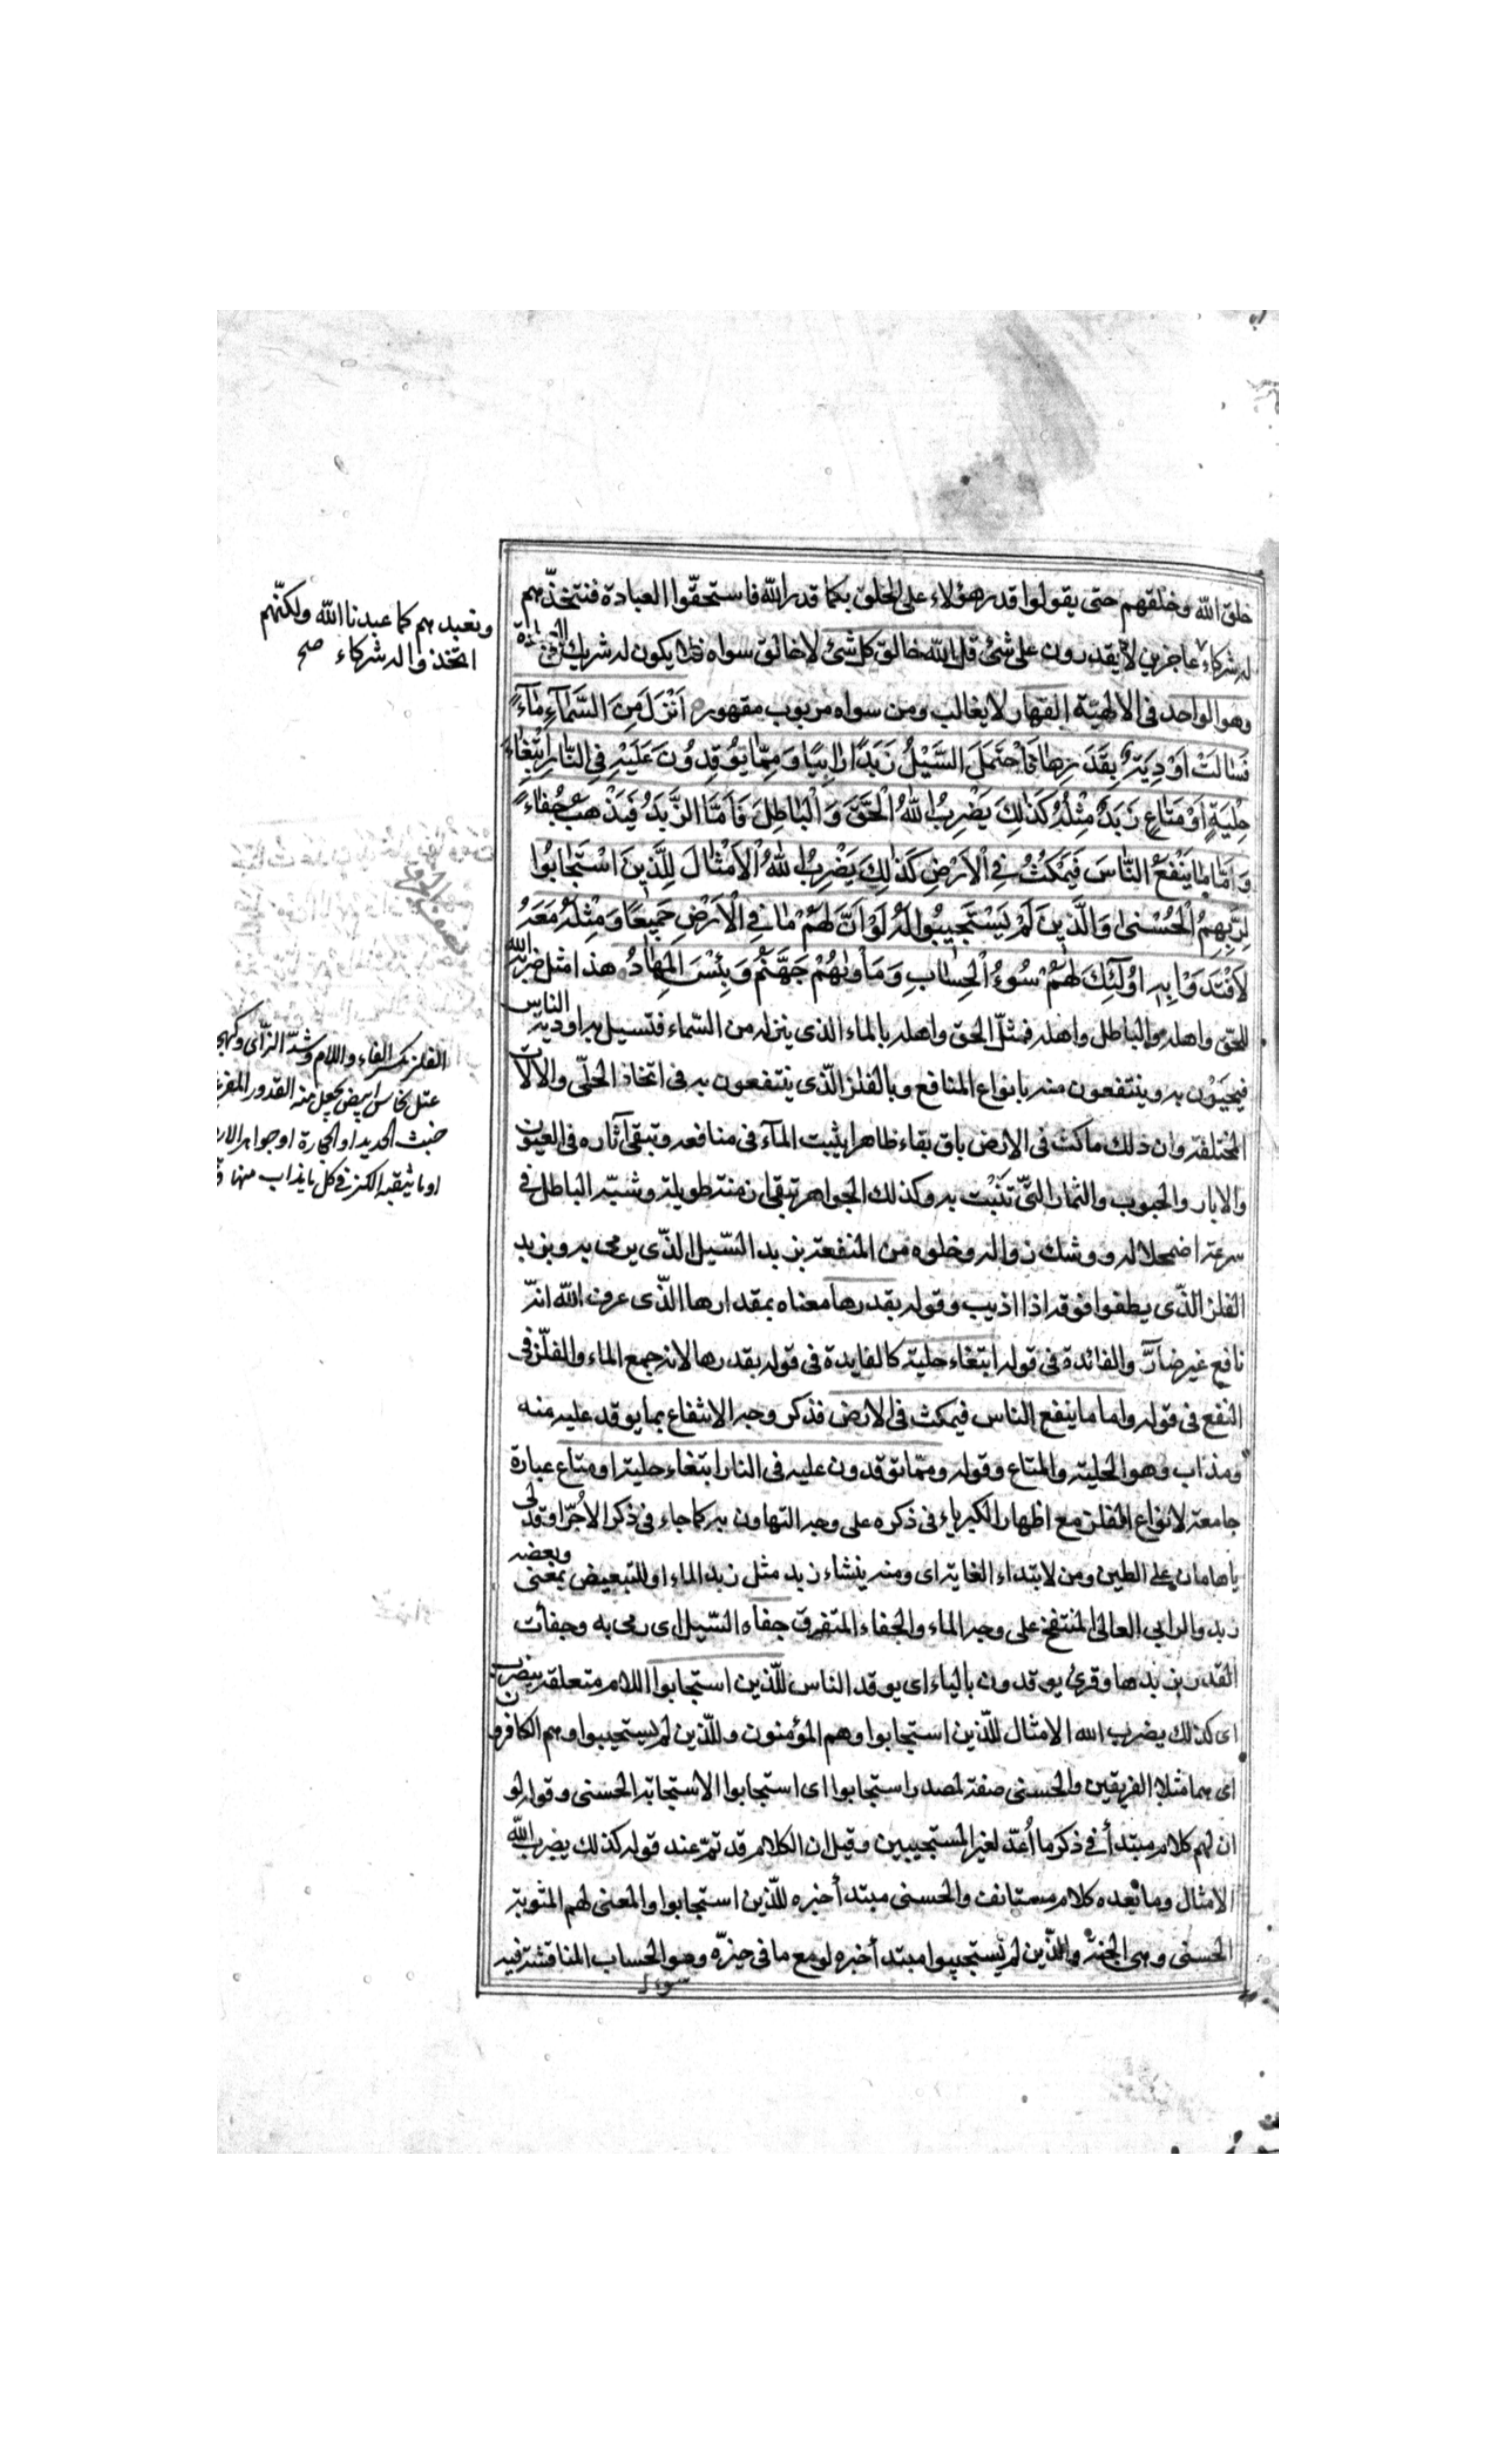 خلق الله وخلقهم حتى يقولوا قدر هؤلاء على الخلق كما قدر الله فاستحقّوا العبادة فنتخذّهم
له شركاء عاجزين لا يقدرون على شئ قل الله خالق كل شئ لا خالق سواه فلا يكون له شريك فى العبادة
وهو الواحد فى الالهيّة القهار لا يغالب ومن سواه مربوب مقهور اَنْزَلَ مِنَ السَّمَآءِ مَآءً
فَسٰالَتْ اَوْدِيَةٌ بِقَدَرِهٰا فَاحْتَمَلَ السَّيْلُ زَبَدًا رٰابِيًا وَمِمّٰا يُوقِدُونَ عَلَيْهِ فِي النّٰارِ ابْتِغٰاءَ
حِلْيَةٍ اَوْ مَتٰاعٍ زَبَدٌ مِثْلُهُ كَذٰلِكَ يَضْرِبُ اللهُ الْحَقَّ وَالْبٰاطِلَ فَاَمَّا الزَّبَدُ فَيَذْهَبُ جُفٰاءً
وَاَمّٰا مٰا يَنْفَعُ النّٰاسَ فَيَمْكُثُ فِي الْاَرْضِ كَذٰلِكَ يَضْرِبُ اللهُ الْاَمْثٰالَ لِلَّذِينَ اسْتَجٰابُوا
لِرَبِّهِمُ الْحُسْنٰى وَالَّذِينَ لَمْ يَسْتَجِيبُوا لَهُ لَوْ اَنَّ لَهُمْ مٰا فِي الْاَرْضِ جَمِيعًا وَمِثْلَهُ مَعَهُ
لَافْتَدَوْا بِهِ اُولٰئِكَ لَهُمْ سُوءُ الْحِسٰابِ وَمَأْوٰيهُمْ جَهَنَّمُ وَبِئْسَ الْمِهٰادُ هذا مثل ضربه الله
للحق واهله والباطل واهله فمثّل الحق واهله بالماء الذى ينزله من السّماء فتسيل به اودية الناس
فيحيَوْن به وينتفعون منه بانواع المنافع وبالفلز الّذى ينتفعون به فى اتخاذ الحلّى والالات
المختلفة وان ذلك ماكث فى الارض باق بقاء ظاهرا يثبت المآء فى منافعه وتبقى آثاره فى العيون
والابار والحبوب والثمار الّتى تَنْبُت به وكذلك الجواهر تبقى ازمنة طويلة وشبّه الباطل فى
سرعة اضمحلاله ووشك زواله وخلوه من المنفعة بزبد السّيل الّذى يرمى به وبزبد
الفلز الّذى يطفوا فوقه اذا اذيب وقوله بقدرها معناه بمقدارها الّذى عرف الله انّه
نافع غير ضارّ والفائدة فى قوله ابتغاء حلية كالفايدة فى قوله بقدرها لانه جمع الماء والفلّز فى
النفع فى قوله واما ما ينفع الناس فيمكث فى الارض فذكر وجه الانتفاع بما يوقد عليه منه
ومذاب وهو الحلية والمتاع وقوله وممّا توقدون عليه فى النار ابتغاء حلية او متاع عبارة
جامعة لانواع الفلز مع اظهار الكبرياء فى ذكره على وجه التهاون به كما جاء فى ذكر الآجُرّ اوقد لى
يا هامان على الطين ومن لابتداء الغاية اى ومنه ينشاء زبد مثل زبد الماء او للتبعيض بمعنى وبعضه
زبد والرابى العالى المنتفخ على وجه الماء والجفاء المتفرق جفاه السّيل اى رمى به وجفأت
القدر بزبدها وقرئ يوقدون بالياء اى يوقد الناس للّذين استجابوا اللام متعلقة بيضرب
اى كذلك يضرب الله الامثال للّذين استجابوا وهم المؤمنون وللّذين لم يستجيبوا وهم الكافرون
اى هما مثلا الفريقين والحسنى صفة لمصدر استجابوا اى استجابوا الاستجابة الحسنى وقوله لو
ان لهم كلام مبتدأ فى ذكر ما اُعدّ لغير المستجيبين وقيل ان الكلام قد تمّ عند قوله كذلك يضرب الله
الامثال وما بعده كلام مستانف والحسنى مبتدأ خبره للّذين استجابوا والمعنى لهم المثوبة
الحسنى وهى الجنة والّذين لم يستجيبوا مبتدأ خبره لو مع ما فى حيزّه وهو الحساب المناقشة فيه
سوء
ونعبدهم كما عبدنا الله ولكنّهم
اتّخذوا له شركاء صح
الفلز بكسر الفاء واللام وشدّ الزّاى وكهجف
عتل نحاس ابيض يجعل منه القدور المفرغة
خبث الحديد او الحجارة او جواهر الارض
او ما ينقيه الكير فى كل ما يذاب منها